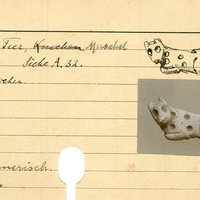 Tier, Knochen Muschel
Siehe A. 32.
chen
merisch.